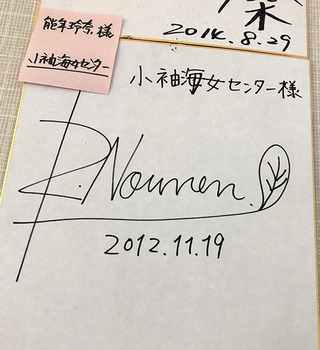 2014.8.29
能年玲奈様
小袖海女センター
小袖海女センター様
R.Nounen.
2012.11.19